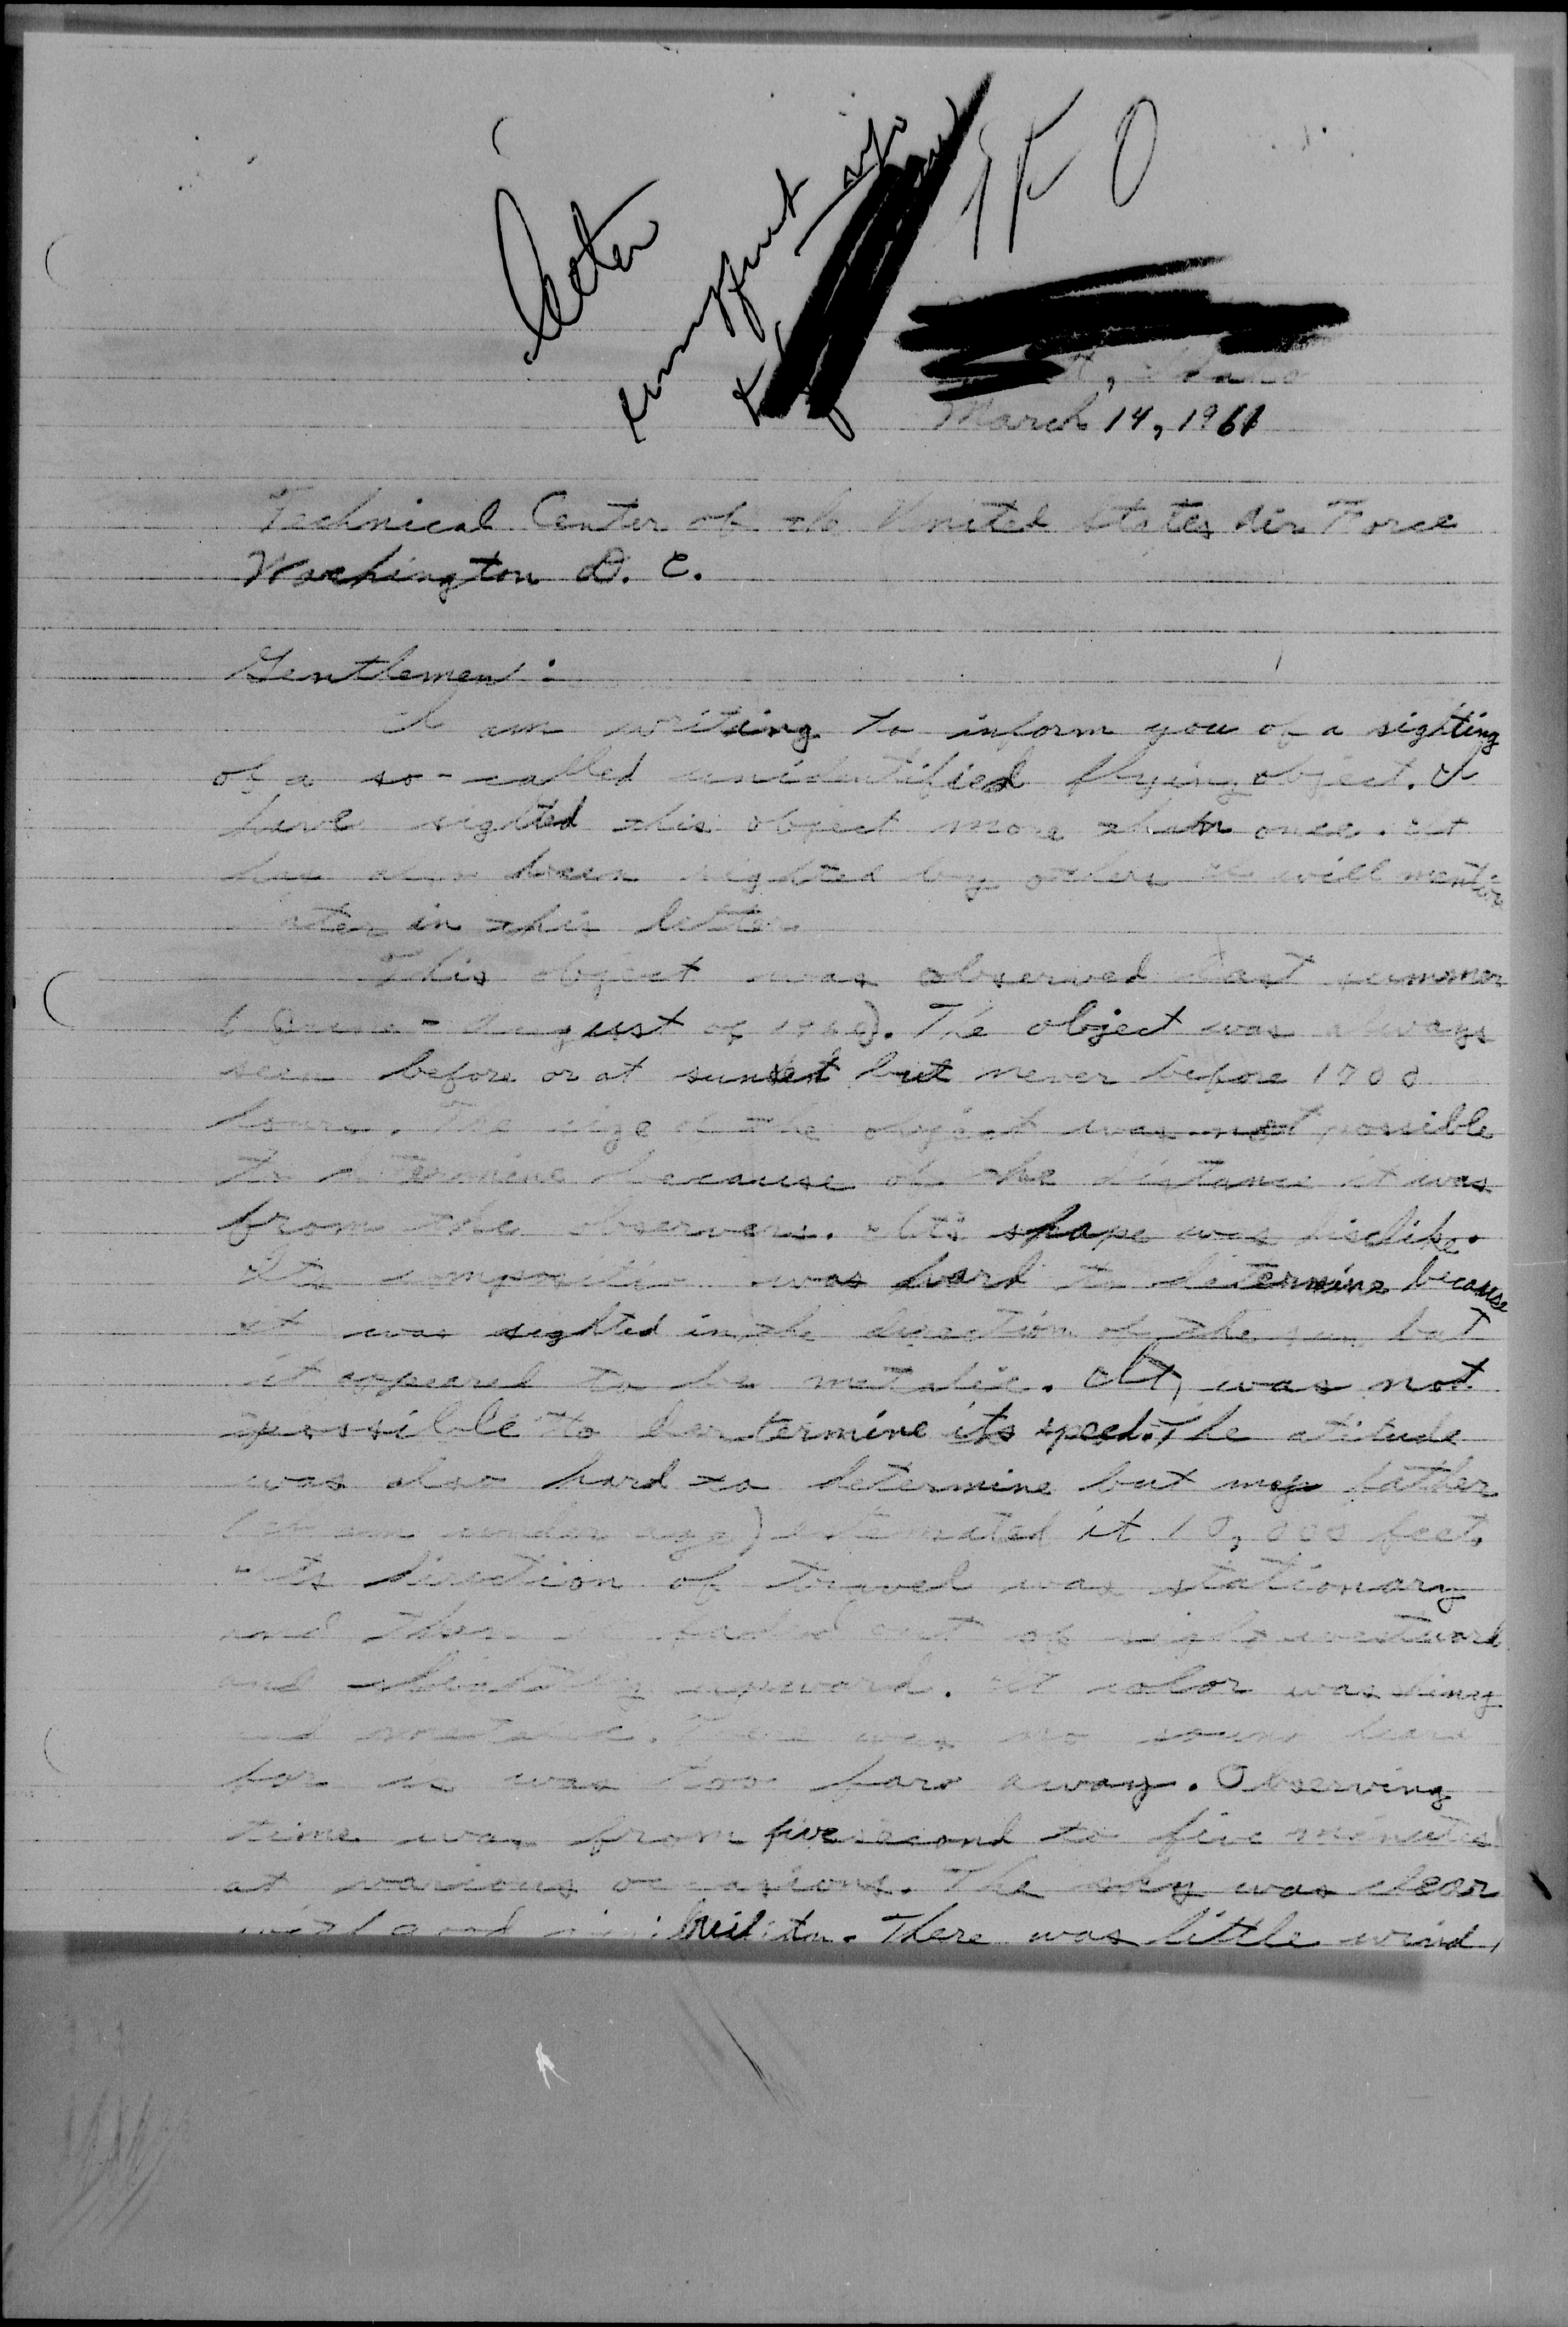 insufficient info
, Idaho
March 14, 1961
Technical Center of the United States Air Force
Washington D. C.
Gentlemen:
I am writing to inform you of a sighting
of a so-called unidentified flying object. I
have sighted this object more than once. It
has also been sighted by others I will mention
later in this letter.
This object was observed last summer
(June - August of 1960). The object was always
seen before or at sunset but never before 1700
hours. The size of the object was not possible
to determine because of the distance it was
from the observers. Its shape was disclike.
Its composition was hard to determine because
it was sighted in the direction of the sun but
it appeared to be metalic. It was not
possible to determine its speed. The atitude
was also hard to determine but my father
(I am under age) estemated it 10,000 feet.
Its direction of travel was stationary
and then it faded out of sight westward
and slightly upward. It color was shiny
and metalic. There was no sound heard
for it was too far away. Observing
time was from five second to five minutes
at various occasions. The sky was clear
with good visibility. There was little wind,